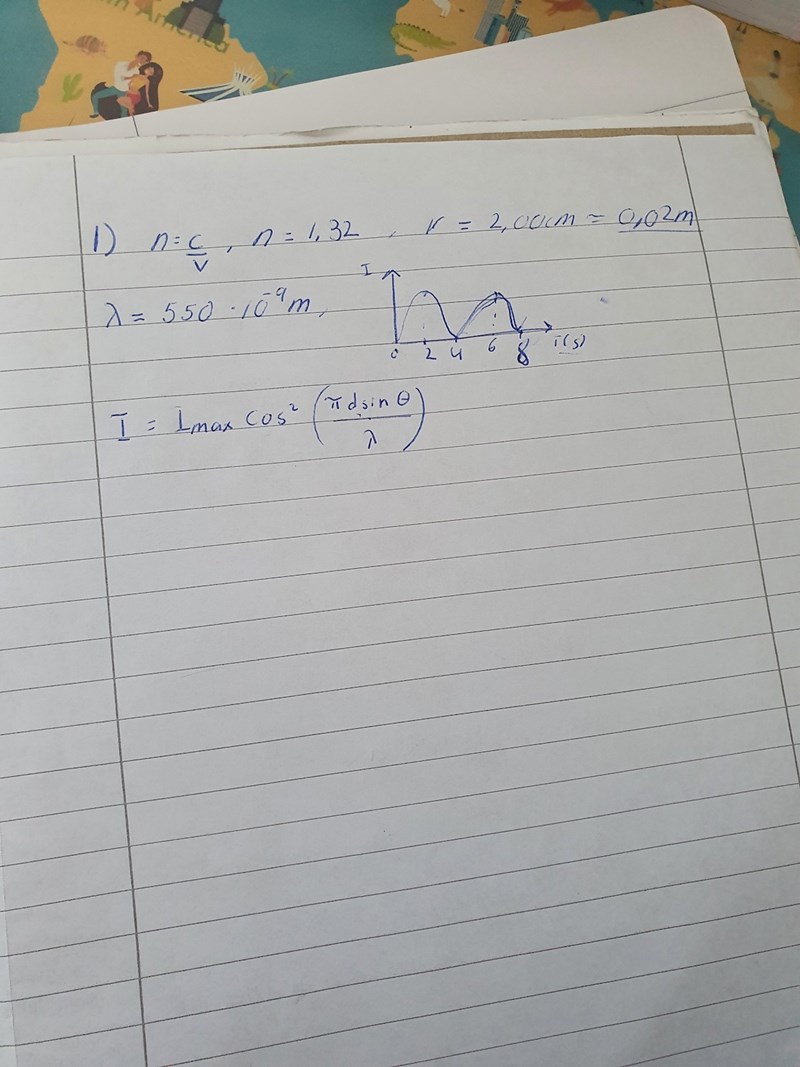 in America
1) n = c/v , n = 1,32 , r = 2,00cm = 0,02m
λ = 550 · 10⁻⁹ m,
I
0 2 4 6 8 t(s)
I = Imax cos² (π d sin θ / λ)